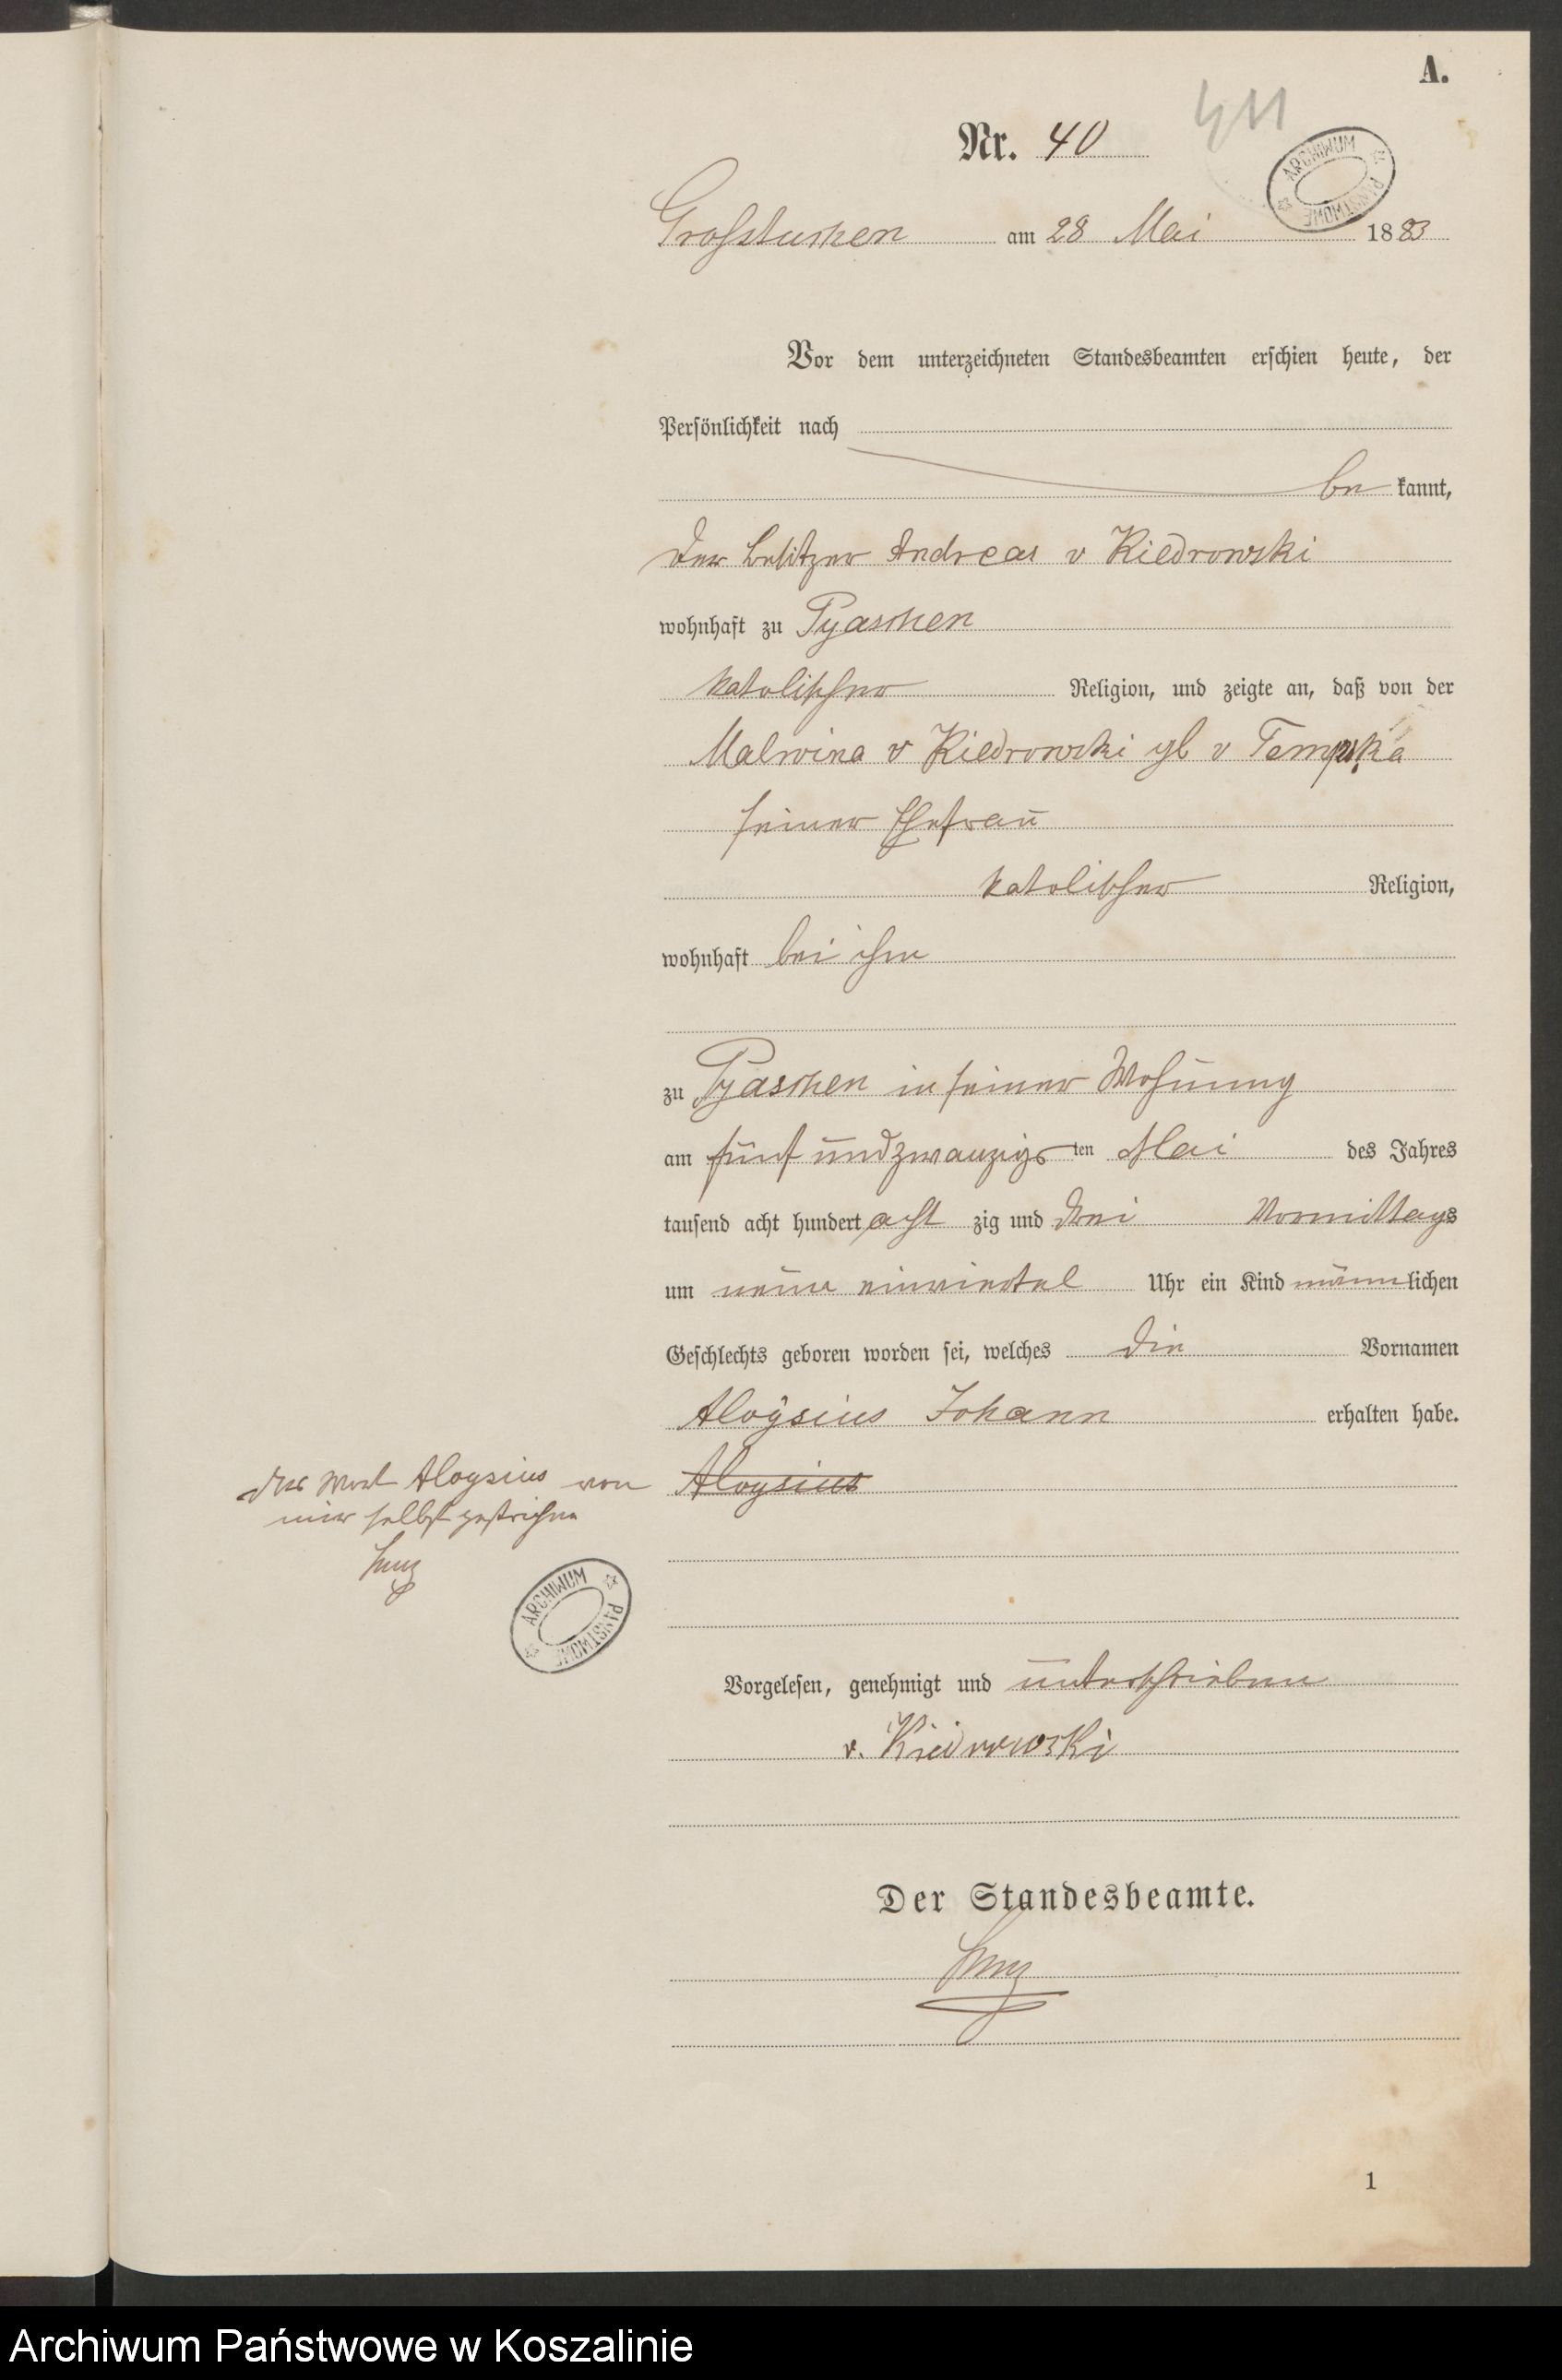 A.
411
Nr. 40
ARCHIWUM PAŃSTWOWE
Grosstuchen am 28 Mai 1883
Vor dem unterzeichneten Standesbeamten erschien heute, der
Persönlichkeit nach
be kannt,
der Besitzer Andreas v Kiedrowski
wohnhaft zu Pyaschen
katolischer Religion, und zeigte an, daß von der
Malwina v Kiedrowski gb v Tempska
seiner Ehefrau
katolischer Religion,
wohnhaft bei ihm
zu Pyaschen in seiner Wohnung
am fünf und zwanzigs ten Mai des Jahres
tausend acht hundert acht zig und drei Vormittags
um neun einviertel Uhr ein Kind männlichen
Geschlechts geboren worden sei, welches die Vornamen
Aloysius Johann erhalten habe.
Aloysius
das Wort Aloysius von
mir selbst gestrichen
ARCHIWUM PAŃSTWOWE
Vorgelesen, genehmigt und unterschrieben
v. Kiedrowski
Der Standesbeamte.
1
Archiwum Państwowe w Koszalinie